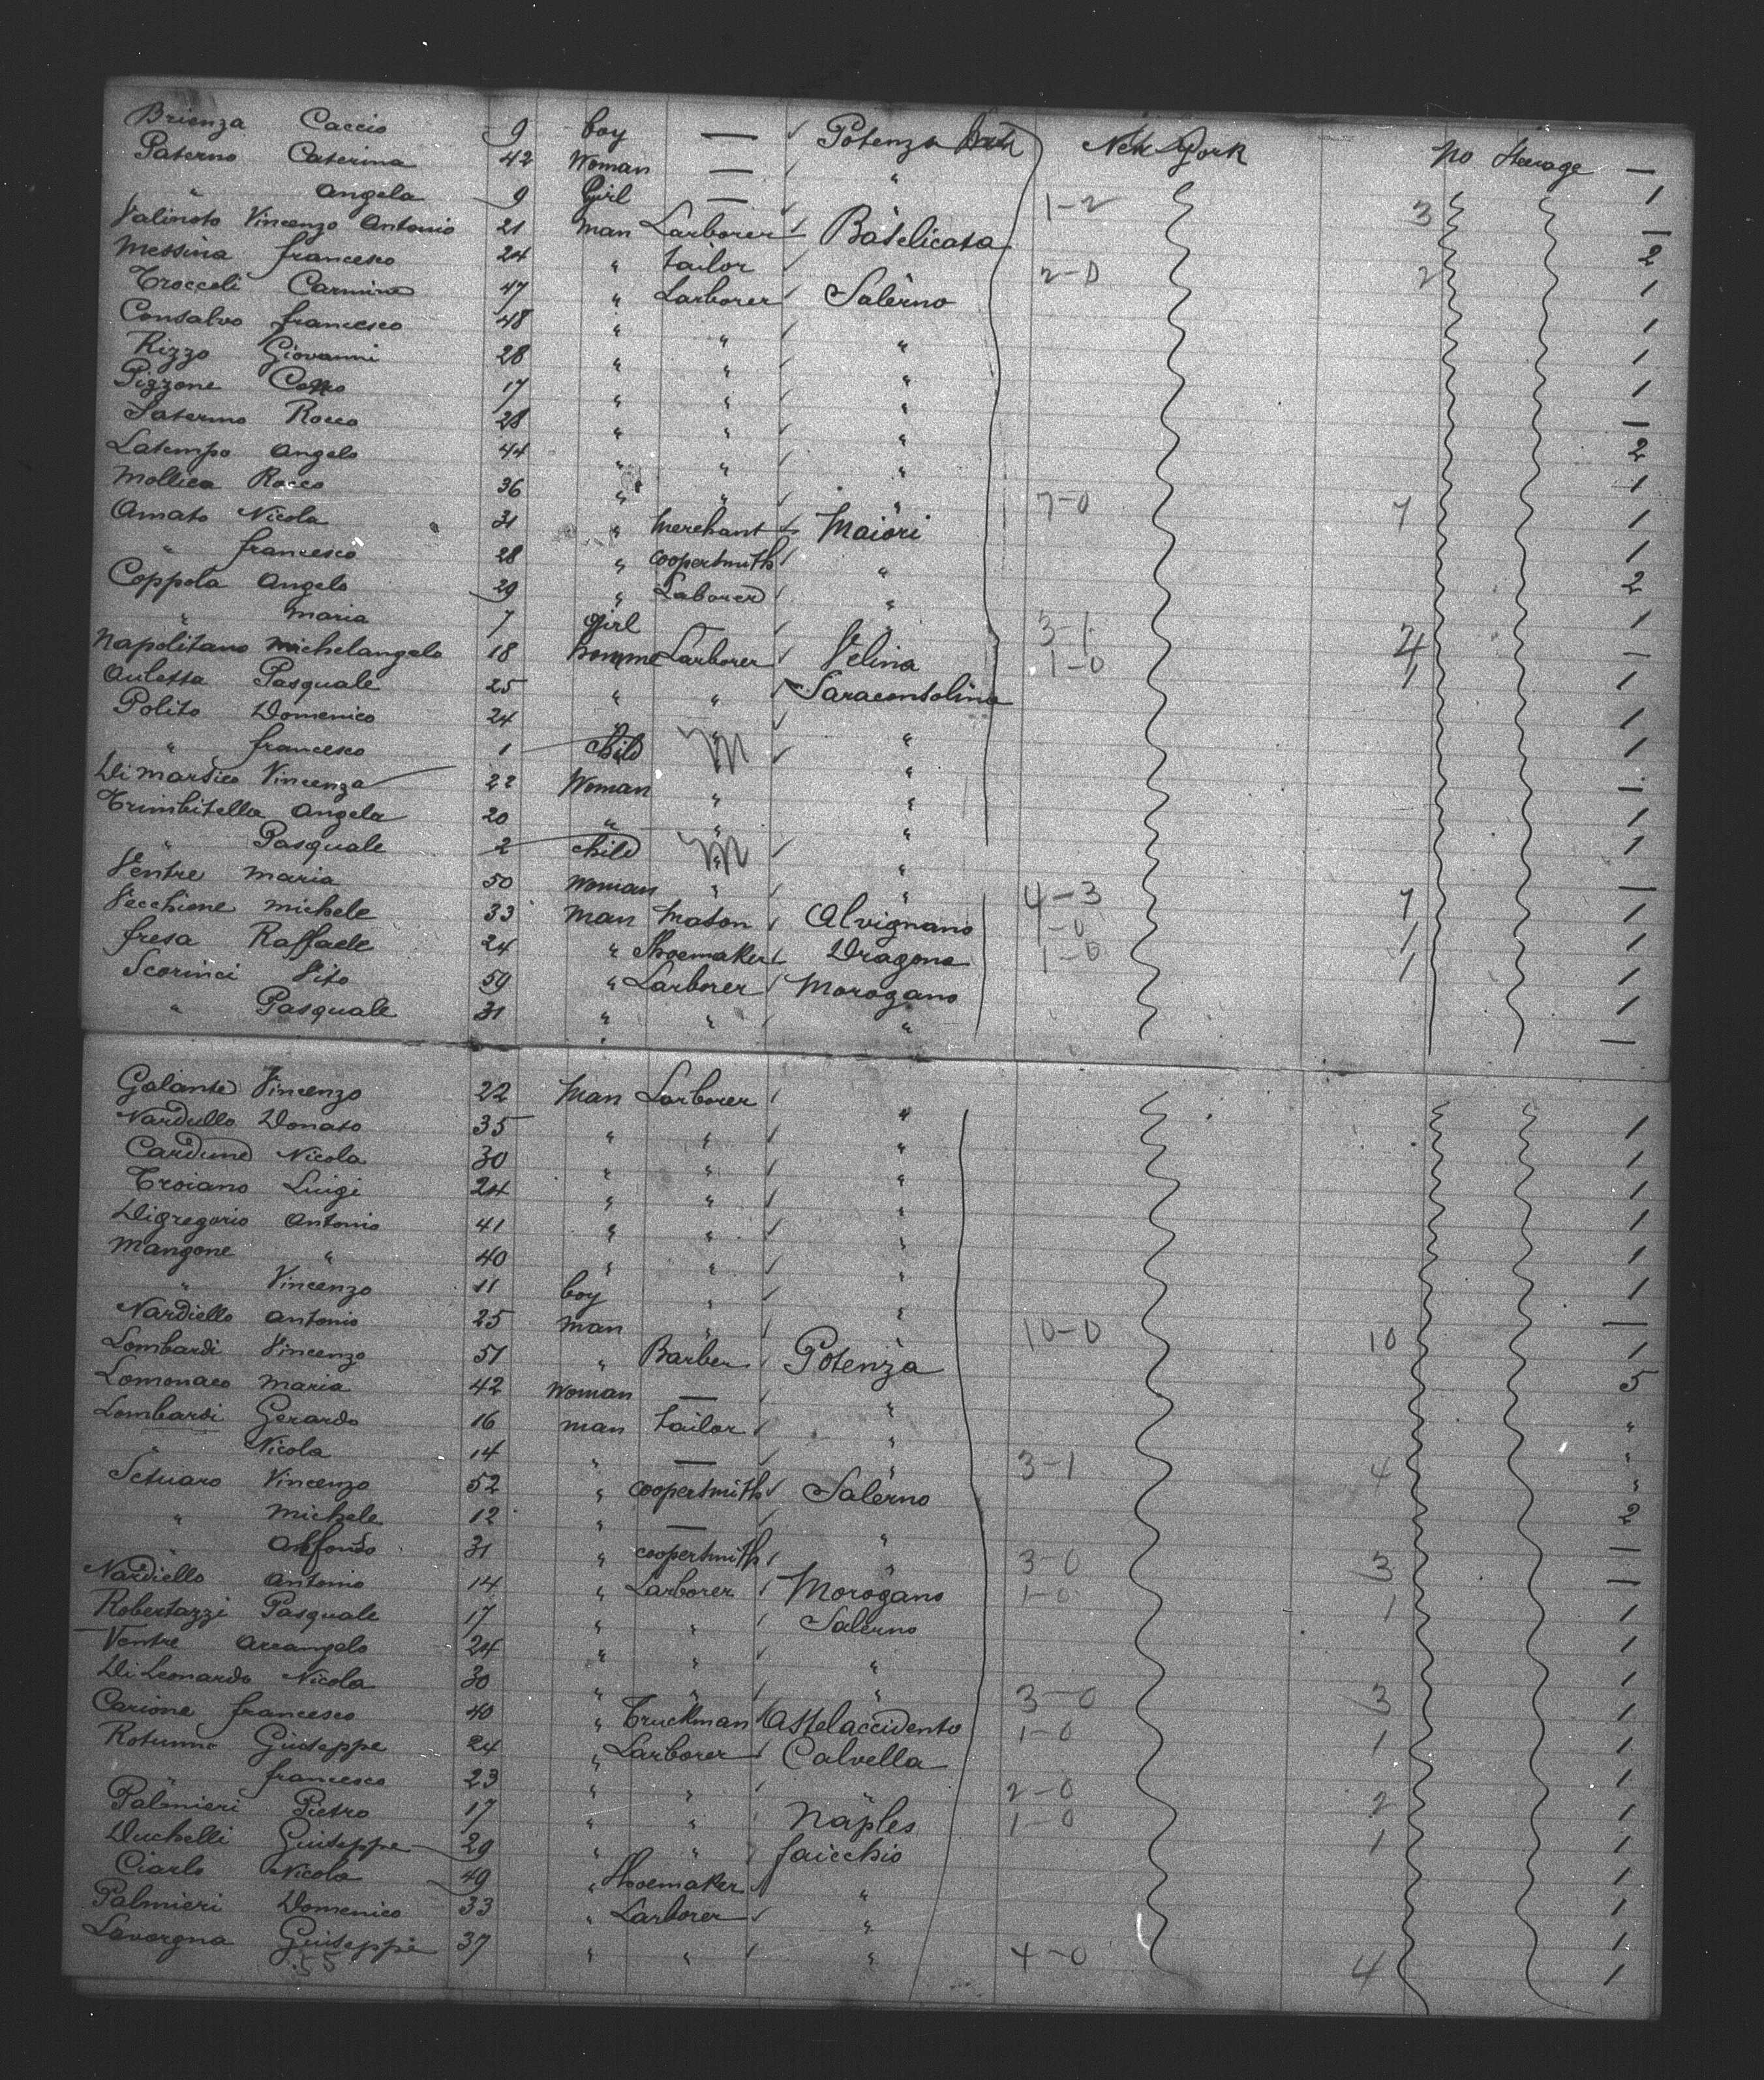 Brienza Caccio 9 boy — Potenza New York No Steerage —
Paterno Caterina 42 Woman — " 1
" Angela 9 Girl — " 1-2 3 —
Valinoto Vincenzo Antonio 21 man Larborer Baselicata 2
Messina francesco 24 " tailor 2-0 2 1
Troccoli Carmine 47 " Larborer Salerno 1
Consalvo francesco 48 " " " 1
Rizzo Giovanni 28 " " " 1
Pizzone 17 " " " —
Saterno Rocco 28 " " " 2
Latempo Angelo 44 " " " 1
Mollica Rocco 36 " " " 7-0 7 1
Amato Nicola 31 " Merchant Maiori 1
" francesco 28 " coopersmith " 2
Coppola Angelo 29 " Laborer " 1
" Maria 7 girl " 3-1 4 —
Napolitano Michelangelo 18 homme Larborer Velina 1-0 1 1
Auletta Pasquale 25 " " Saraconsolina 1
Polito Domenico 24 " " " 1
" francesco 1 child " " —
Dimarsico Vincenza 22 Woman " " 1
Trimbitella Angela 20 " " " 1
" Pasquale 2 child " " —
Ventre Maria 50 Woman " " 4-3 7 1
Vecchione Michele 33 Man Mason Alvignano 1-0 1 1
fresa Raffaele 24 " Shoemaker Dragone 1-0 1 1
Scorinci Vito 59 " Larborer Morogano 1
" Pasquale 31 " " " —
Galante Vincenzo 22 Man Larborer " 1
Nardullo Donato 35 " " " 1
Cardone Nicola 30 " " " 1
Troiano Luigi 24 " " " 1
Digregorio Antonio 41 " " " 1
Mangone " 40 " " " 1
" Vincenzo 11 boy " " —
Nardiello Antonio 25 man " " 10-0 10 1
Lombardi Vincenzo 51 " Barber Potenza 5
Lomonaco Maria 42 Woman — " "
Lombardi Gerardo 16 man tailor " "
" Nicola 14 " — " 3-1 4 "
Setuaro Vincenzo 52 " coopersmith Salerno 2
" Michele 12 " — " —
" Alfonso 31 " coopersmith " 3-0 3 —
Nardiello Antonio 14 " Larborer Morogano 1-0 1 1
Robertazzi Pasquale 17 " " Salerno 1
Ventre Arcangelo 24 " " " 1
Di Leonardo Nicola 30 " " " 3-0 3 1
Carione francesco 40 " Truckman Castelaccidento 1-0 1 1
Rotunno Giuseppe 24 " Larborer Calvella 1
" francesco 23 " " 2-0 2 1
Palmieri Pietro 17 " " Naples 1-0 1 1
Duchelli Guiseppe 29 " " faicchio 1
Ciarlo Nicola 49 " Shoemaker " 1
Palmieri Domenico 33 " Larborer " 1
Lavorgna Guiseppe 37 " " " 4-0 4 1
55